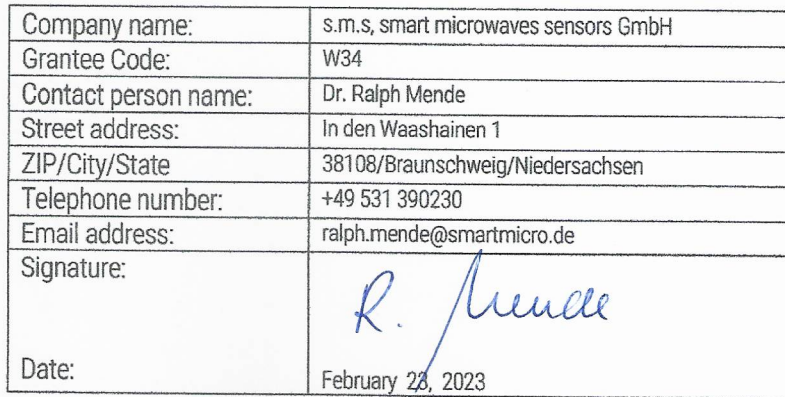 Company name: s.m.s, smart microwaves sensors GmbH
Grantee Code: W34
Contact person name: Dr. Ralph Mende
Street address: In den Waashainen 1
ZIP/City/State 38108/Braunschweig/Niedersachsen
Telephone number: +49 531 390230
Email address: ralph.mende@smartmicro.de
Signature: R. Mende
Date: February 23, 2023